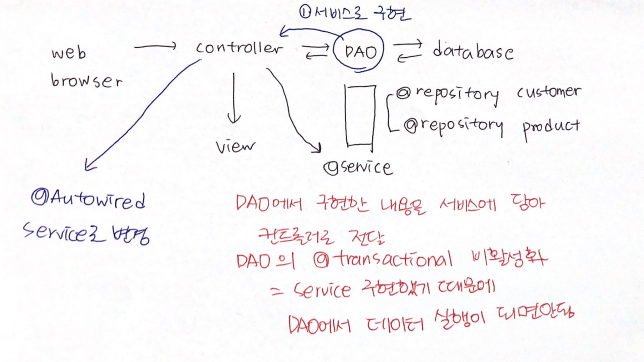 ①서비스로 구현
web browser
controller
DAO
database
@repository customer
@repository product
view
@service
@Autowired
Service로 변경
DAO에서 구현한 내용을 서비스에 담아
컨트롤러로 전달
DAO의 @transactional 비활성화
= Service 구현했기 때문에
DAO에서 데이터 실행이 되면안됨